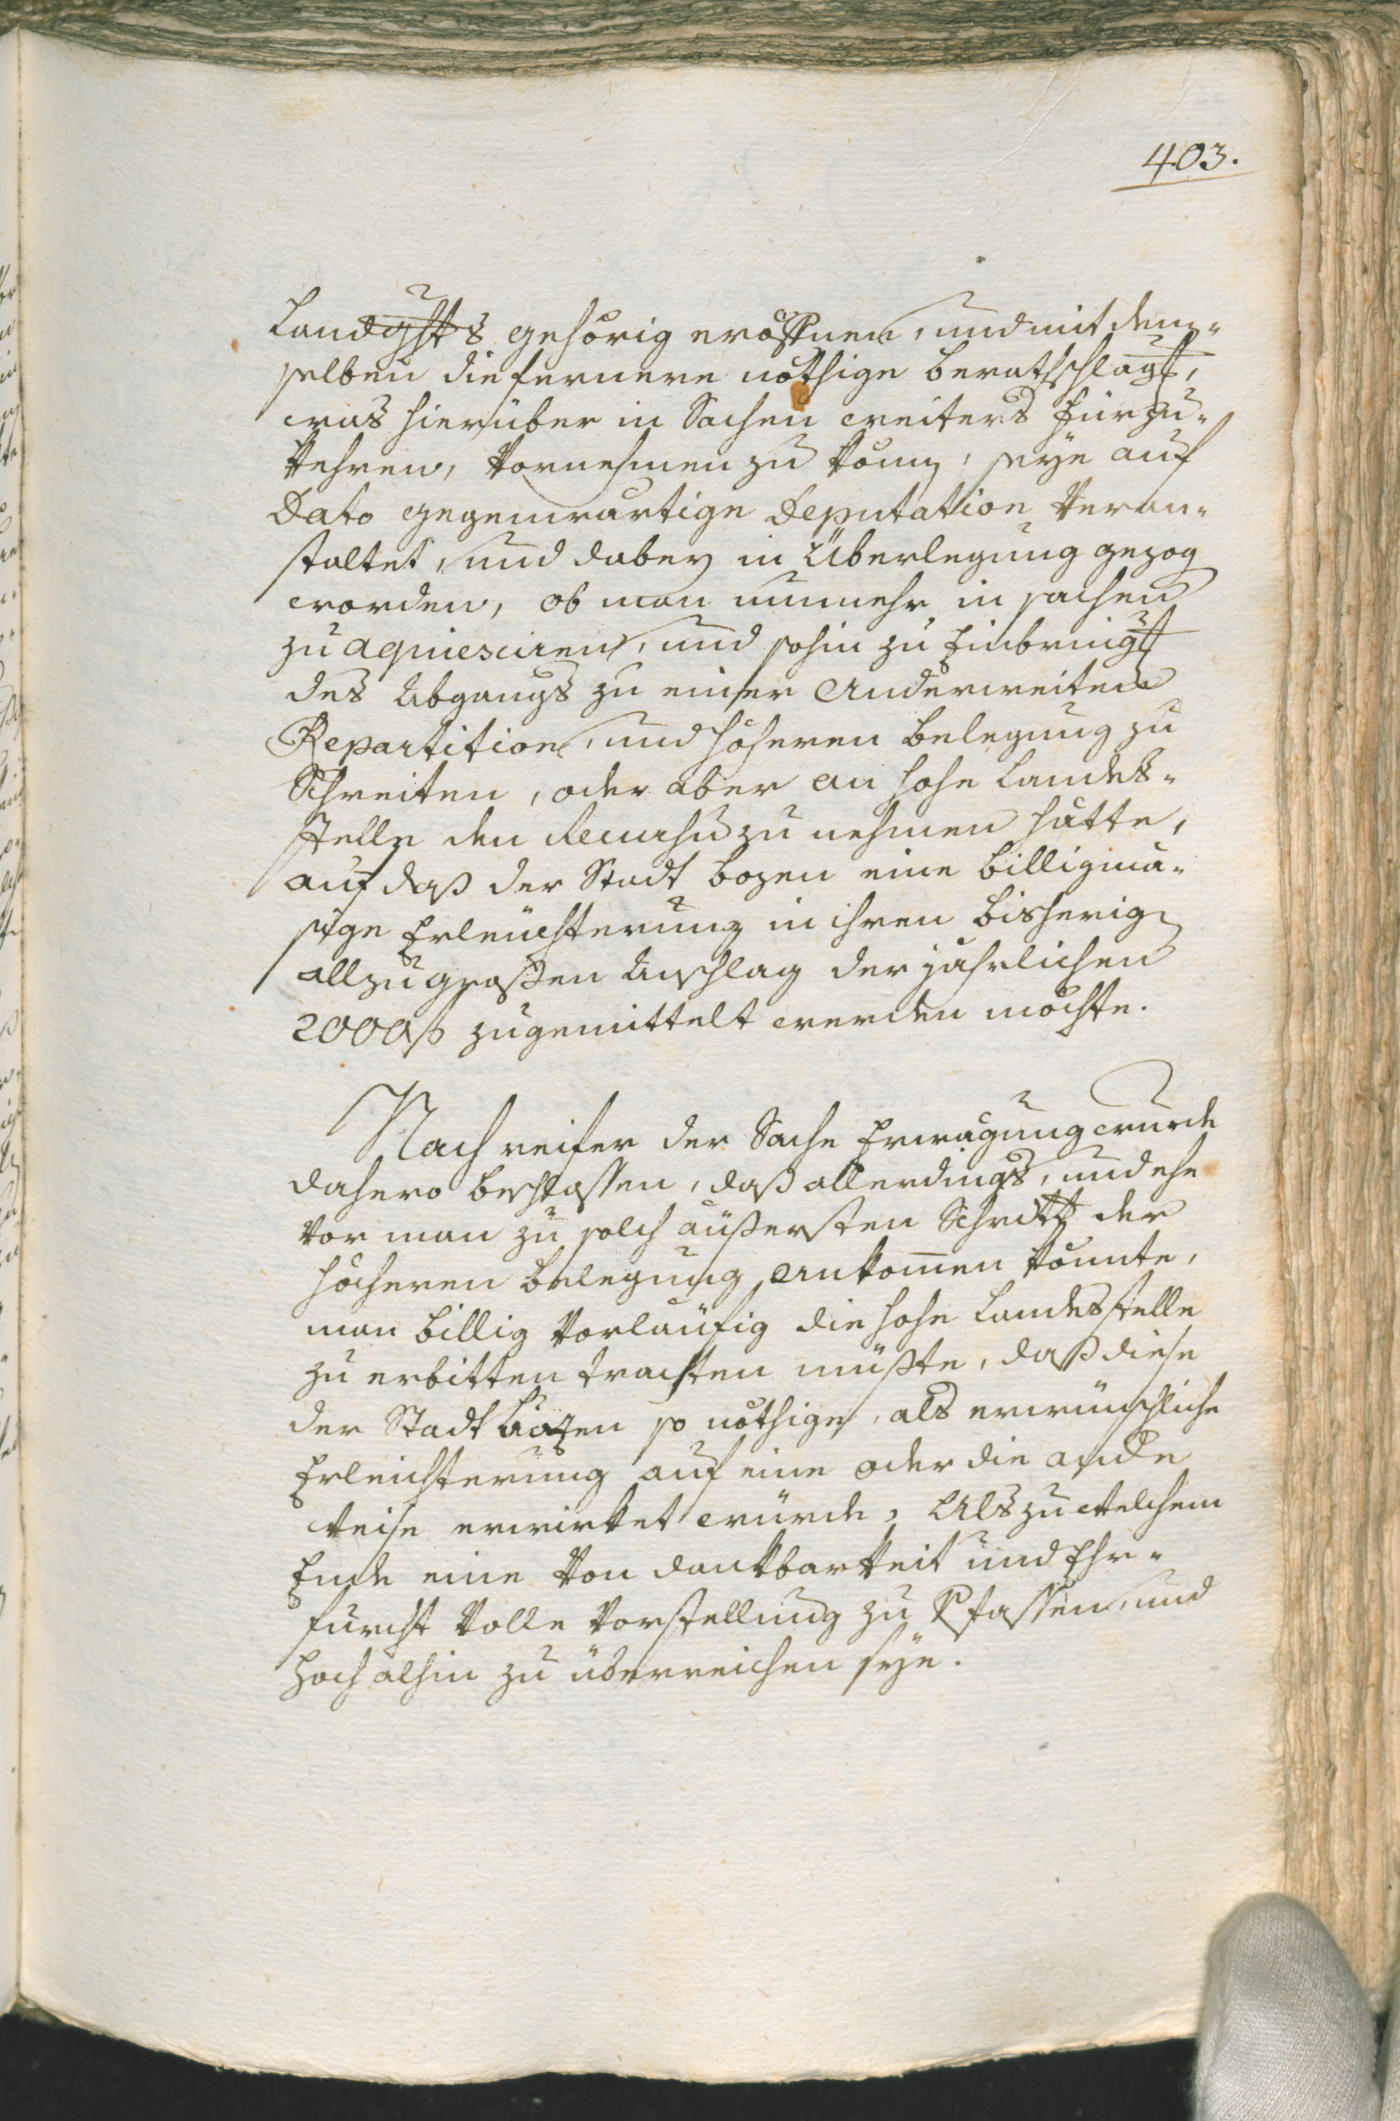 403.
Landghts gehörig eröffnen, und mit dem-
selben die fernere nöthige berathschlagg,
was hierüber in Sachen weiters fürzu-
kehren, vornehmen zu könn, seye auf
Dato gegenwärtige Deputation veran-
staltet, und dabey in Überlegung gezog
worden, ob man nunmehr in sachen
zu aquiesciren, und sohin zu Einbringg
des Abgangs zu einer anderweiten
Repartition, und höheren belegung zu
Schreiten, oder aber an hohe Landes-
stelle den Recurs zu nehmen hätte,
auf daß der Stadt bozen eine billigmä-
sige Erleüchterung in ihren bisherig
allzu großen Anschlag der jährlichen
2000 f zugemittelt werden möchte.
Nach reifer der Sache Erwägung wurde
dahero beschlossen, daß allerdings, und ehe
vor man zu solch äüßersten Schritt der
höcheren belegung ankom̄en könnte,
man billig vorläüfig die hohe Landesstelle
zu erbitten trachten müßte, daß diese
der Stadt bozen so nöthige, als erwünschliche
Erleichterung auf eine oder die andre
Weise erwirket würde, Als zu welchem
Ende eine von dankbarkeit und Ehr-
furcht volle Vorstellung zu Vfassen, und
hoch alhin zu überreichen seye.